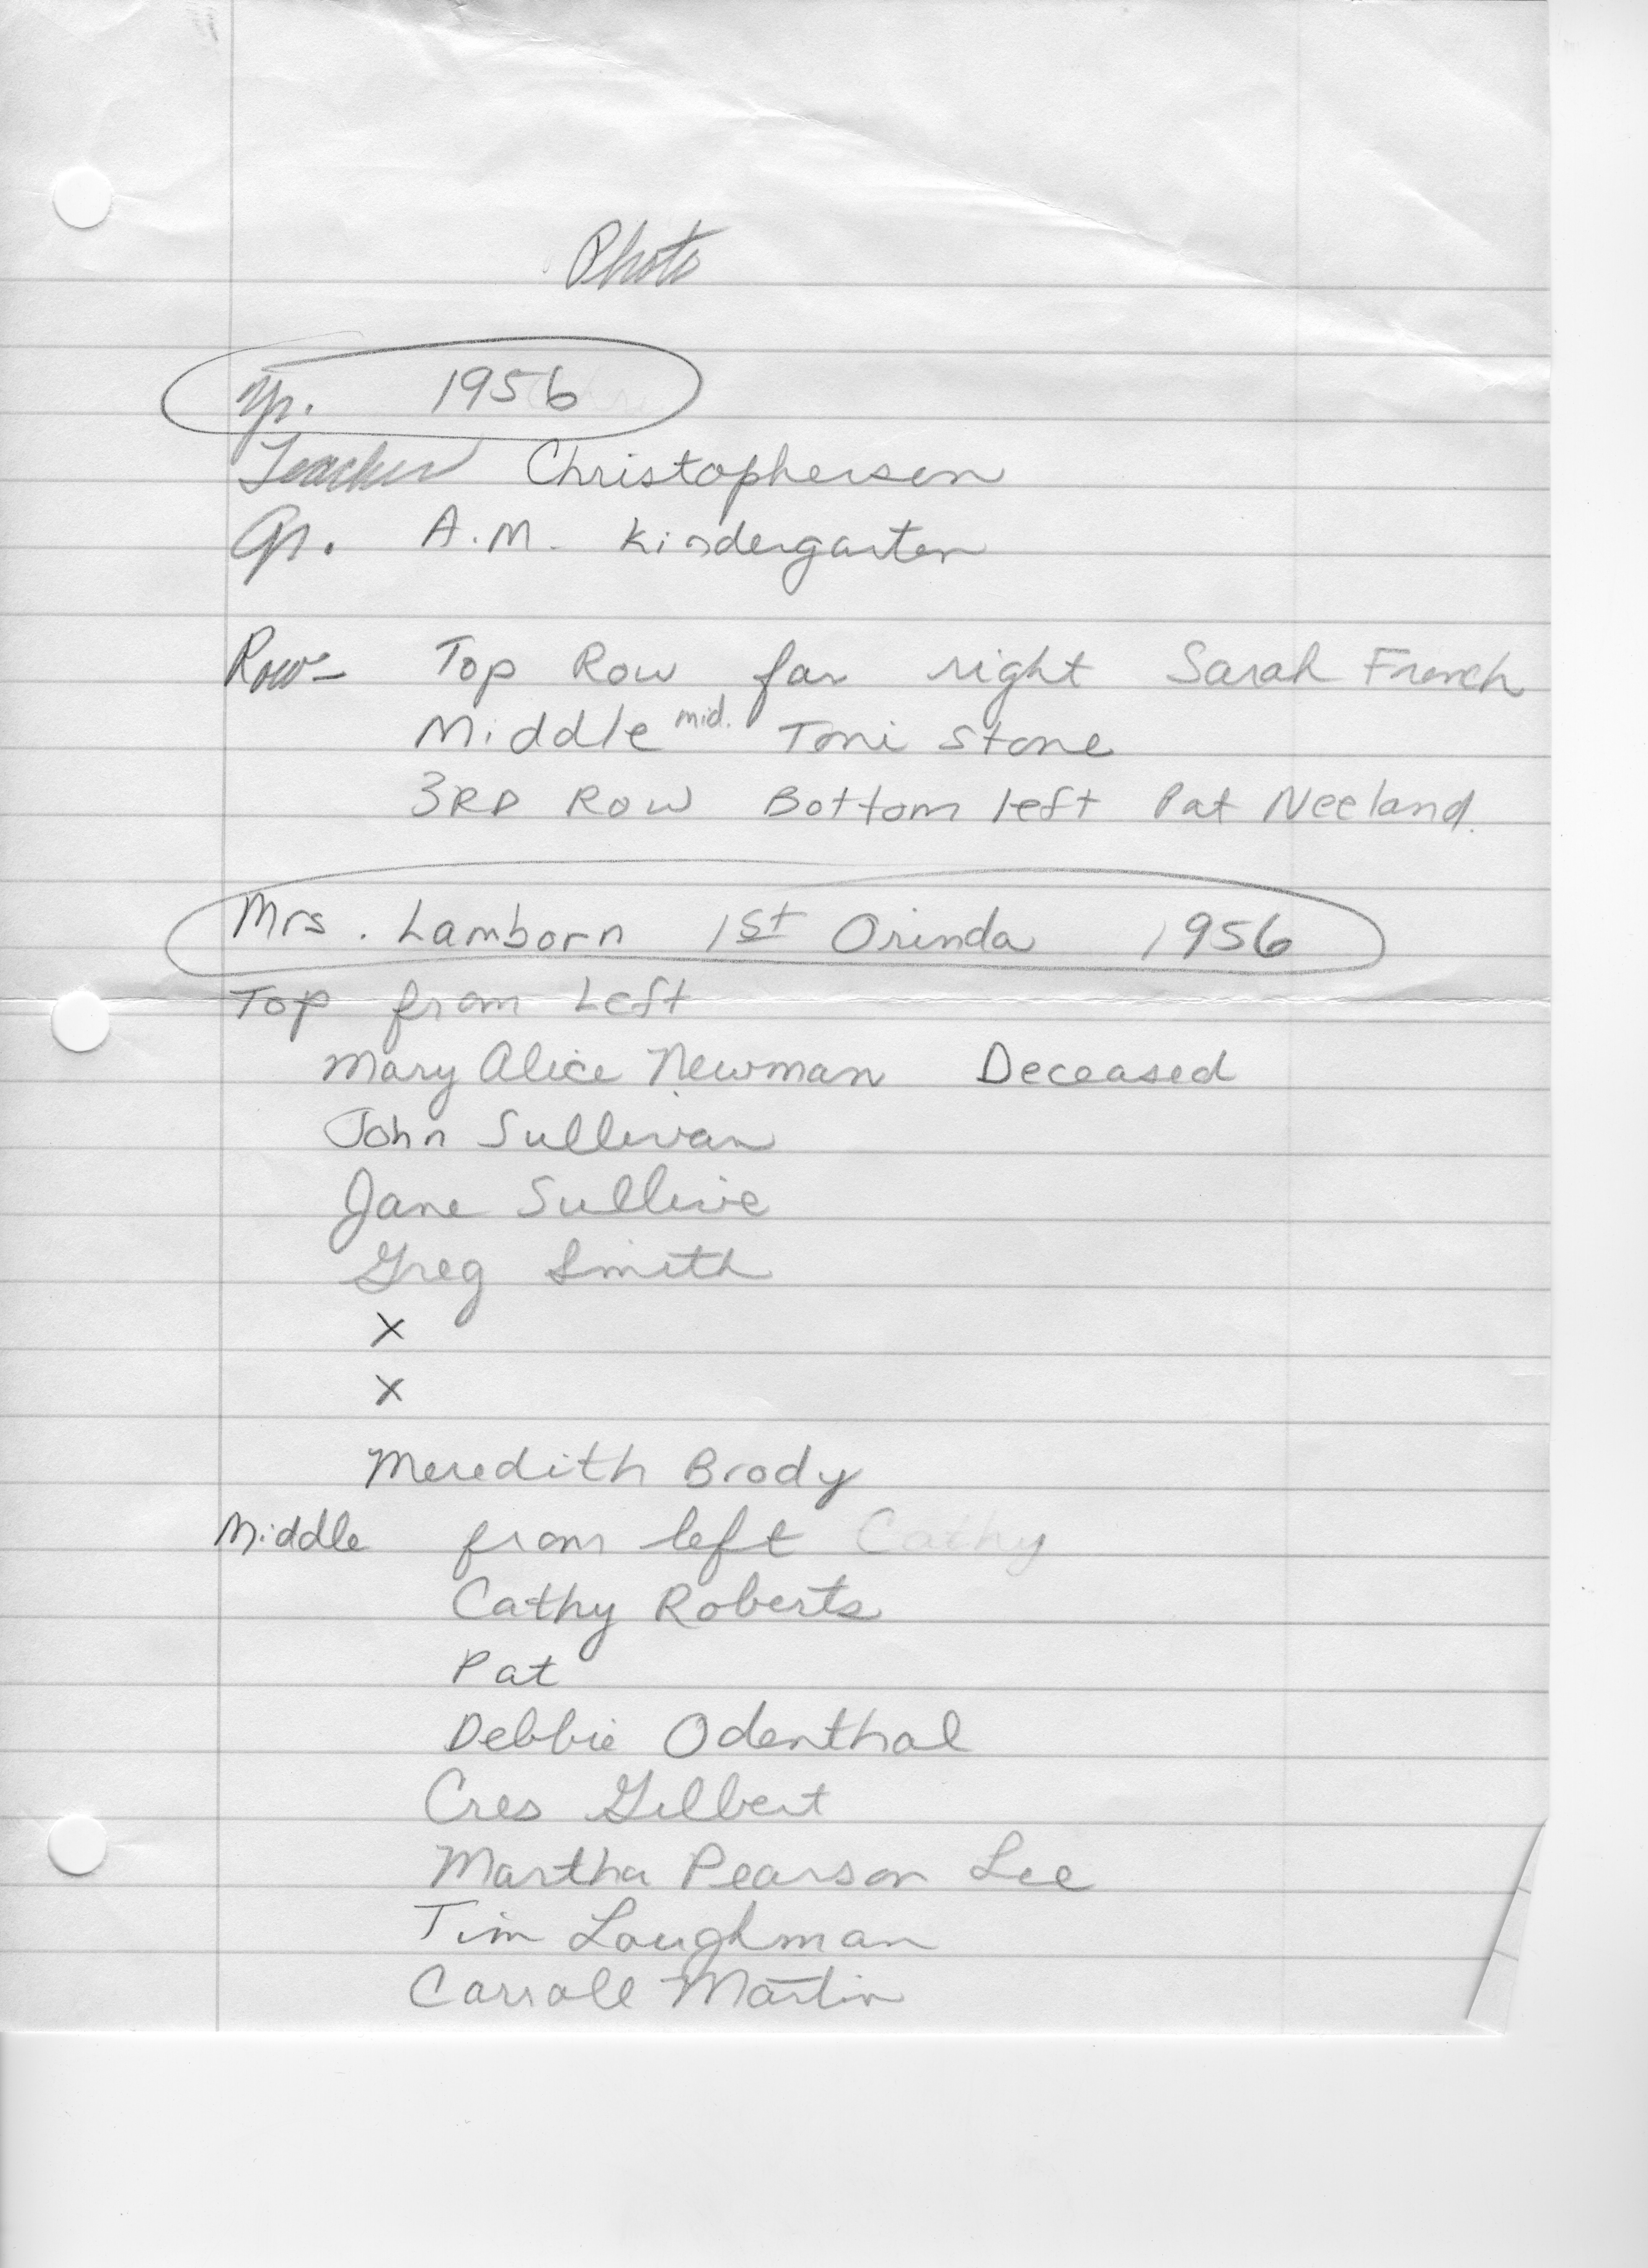 Photo
Yr. 1956
Teacher Christopherson
Gr. A.M. Kindergarten
Row- Top Row far right Sarah French
Middle mid. Toni Stone
3RD Row Bottom left Pat Neeland.
Mrs. Lamborn 1st Orinda 1956
Top from Left
Mary Alice Newman Deceased
John Sullivan
Jane Sullivie
Greg Smith
X
X
Meredith Brody
Middle from left Cathy
Cathy Roberts
Pat
Debbie Odenthal
Cres Gilbert
Martha Pearson Lee
Tim Loughman
Carroll Martin